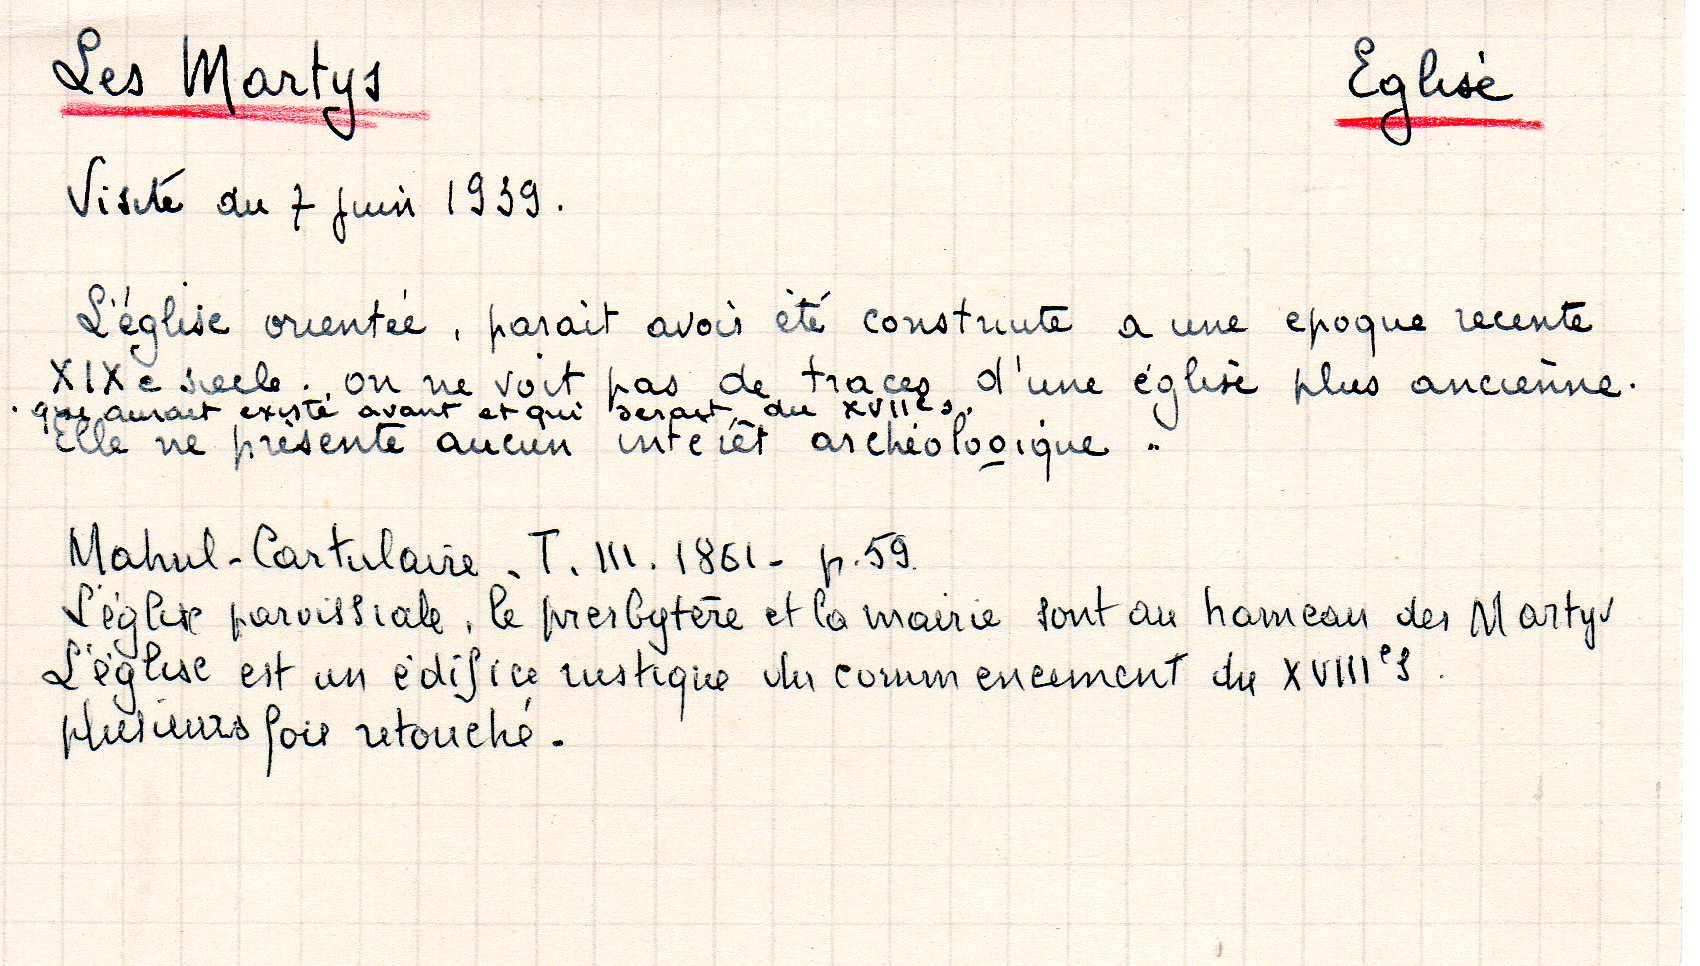 Les Martys Eglise
Visite du 7 juin 1939.
L'église orientée, parait avoir été construite a une epoque recente
XIXe siecle. on ne voit pas de traces d'une église plus ancienne.
qui aurait existé avant et qui serait du XVIIe s.
Elle ne présente aucun intérêt archéologique..
Mahul-Cartulaire. T. III. 1861- p.59.
L'église paroissiale, le presbytère et la mairie sont au hameau des Martys
L'église est un édifice rustique du commencement du XVIIIe s.
plusieurs fois retouché.